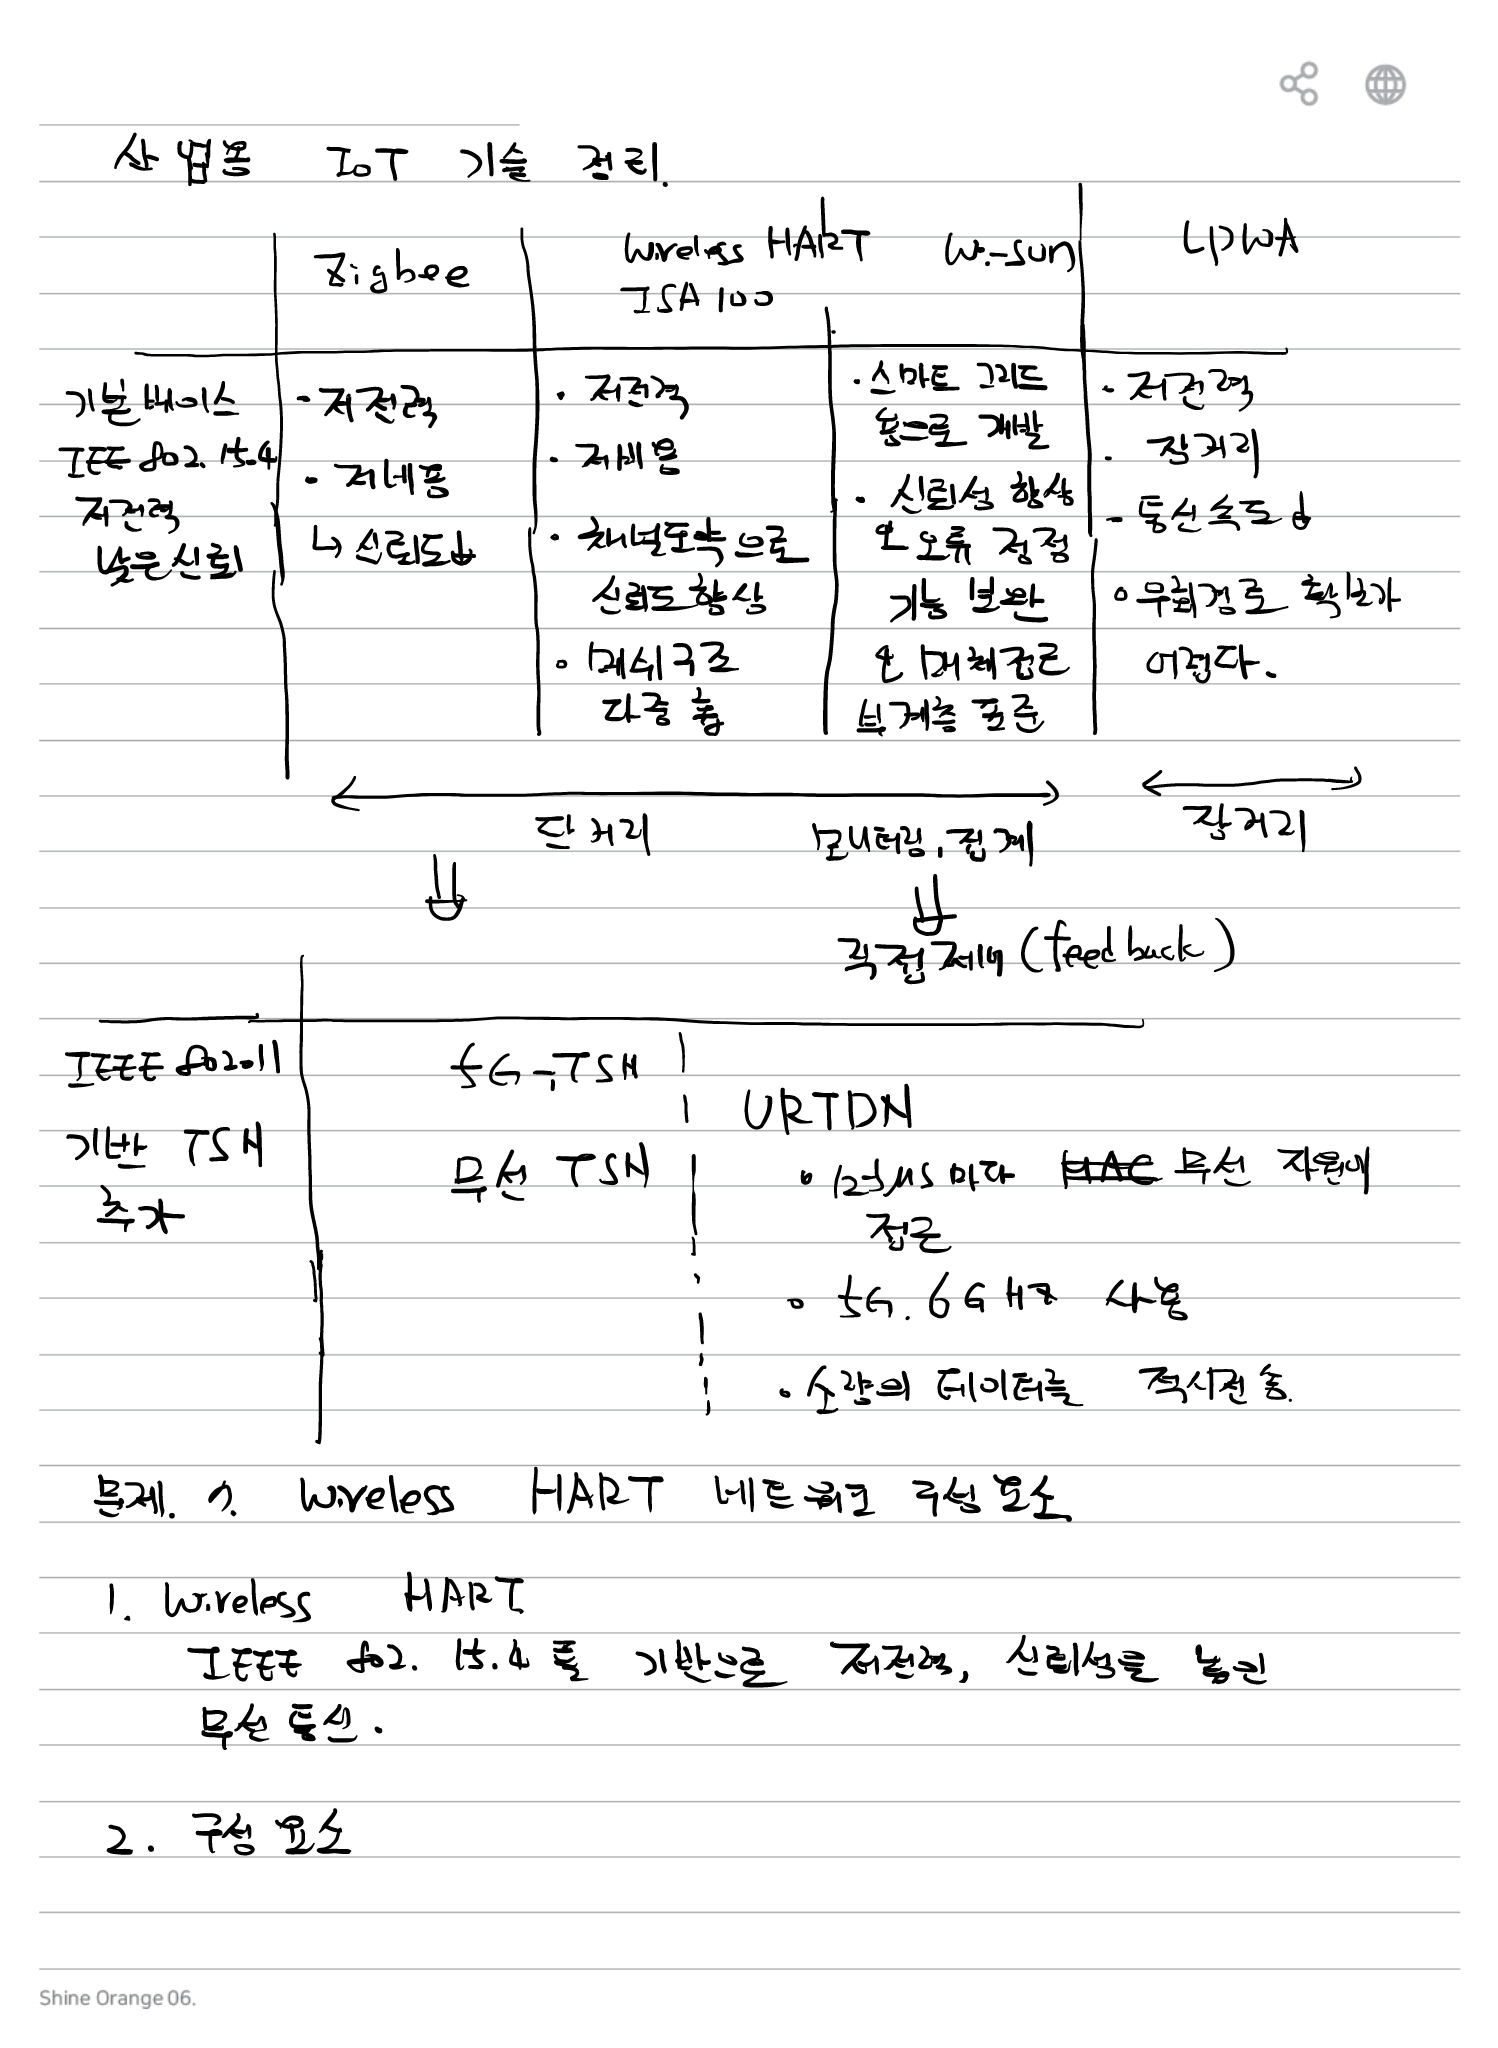 산업용 IoT 기술 정리.
Zigbee
Wireless HART
ISA 100
Wi-SUN
LPWA
기본 베이스
IEEE 802.15.4
저전력
낮은 신뢰
· 저전력
· 저비용
↳ 신뢰도↓
· 저전력
· 저비용
· 채널도약으로
신뢰도 향상
· 메쉬구조
다중 홉
· 스마트 그리드
용으로 개발
· 신뢰성 향상
오류 정정
기능 보완
매체접근
부계층 표준
· 저전력
· 장거리
- 통신속도↓
· 우회경로 확보가
어렵다.
단거리
모니터링, 집계
장거리
직접제어 (feedback)
IEEE 802.11
기반 TSN
추가
5G-TSN
무선 TSN
URTDN
· 125μs마다 무선 자원에
접근
· 5G. 6GHz 사용
· 소량의 데이터를 적시전송.
문제. Wireless HART 네트워크 구성요소
1. Wireless HART
IEEE 802. 15.4 를 기반으로 저전력, 신뢰성을 높인
무선 통신.
2. 구성 요소
Shine Orange 06.